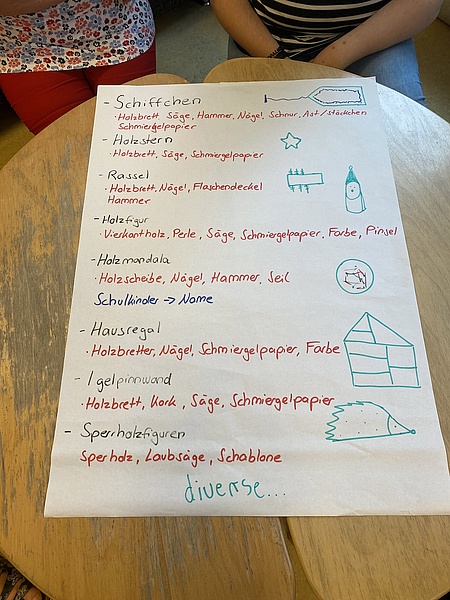 - Schiffchen
· Holzbrett Säge, Hammer, Nägel, Schnur, Ast/stöckchen
Schmiergelpapier
- Holzstern
· Holzbrett, Säge, Schmiergelpapier
- Rassel
· Holzbrett, Nägel, Flaschendeckel
Hammer
- Holzfigur
· Vierkantholz, Perle, Säge, Schmiergelpapier, Farbe, Pinsel
- Holzmandala
· Holzscheibe, Nägel, Hammer, Seil
Schulkinder → Name
- Hausregal
· Holzbretter, Nägel, Schmiergelpapier, Farbe
- Igelpinnwand
· Holzbrett, Kork, Säge, Schmiergelpapier
- Sperrholzfiguren
Sperholz, Laubsäge, Schablone
diverse...